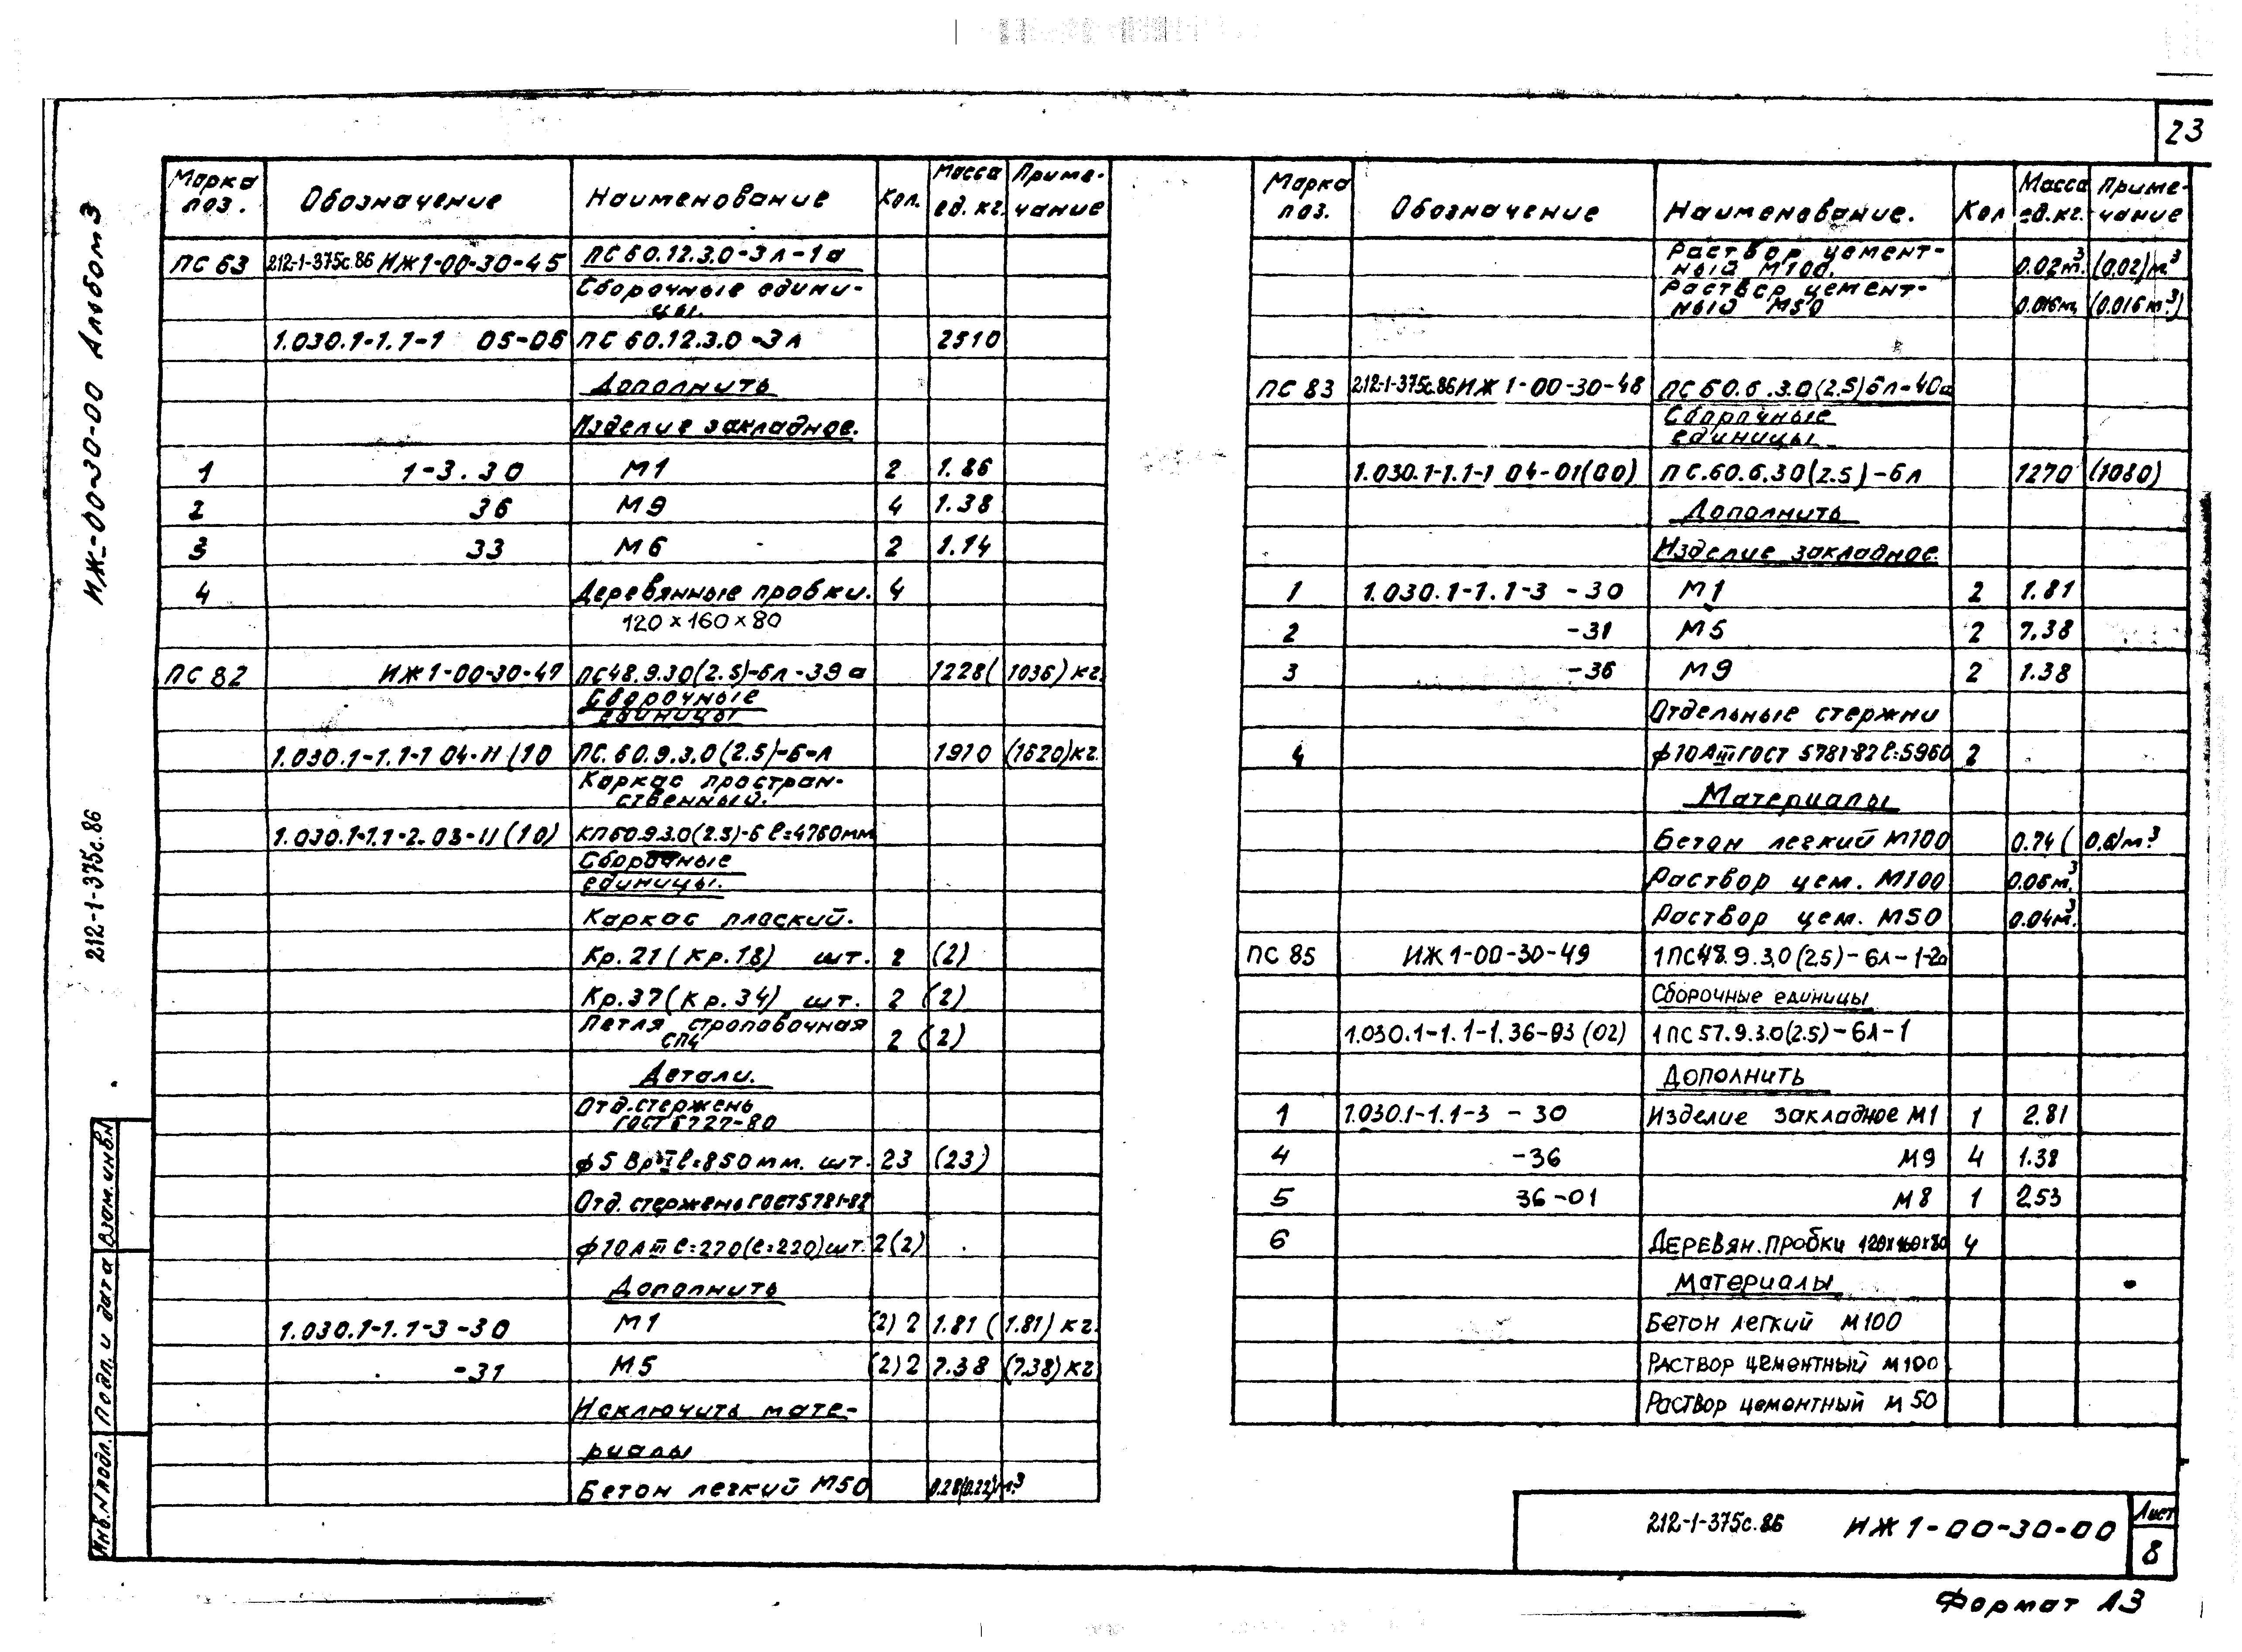 23
ИЖ-00-30-00 Альбом 3
212-1-375с.86
Марка поз. Обозначение Наименование Кол. Масса ед. кг. Примечание
ПС 63 212-1-375с.86 ИЖ1-00-30-45 ПС 60.12.3.0-3л-1а
Сборочные едини-
цы.
1.030.1-1.1-1 05-06 ПС 60.12.3.0-3л 2510
Дополнить
Изделие закладное.
1 1-3.30 М1 2 1.86
2 36 М9 4 1.38
3 33 М6 2 1.14
4 Деревянные пробки. 4
120×160×80
ПС 82 ИЖ1-00-30-47 ПС48.9.30(2.5)-6л-39а 1228(1036)кг.
Сборочные
единицы
1.030.1-1.1-1 04-11(10 ПС.60.9.3.0(2.5)-6-л 1910 (1620)кг.
Каркас простран-
ственный.
1.030.1-1.1-2.03-11(10) КП60.9.3.0(2.5)-6 ℓ=4760мм
Сборочные
единицы.
Каркас плоский.
Кр.21(Кр.18) шт. 2 (2)
Кр.37(Кр.34) шт. 2 (2)
Петля строповочная
СП4 2 (2)
Детали.
Отд.стержень
ГОСТ 6727-80
ф5 ВрI ℓ=850мм. шт. 23 (23)
Отд. стержень ГОСТ5781-82
ф10АIII ℓ=270(ℓ=220)шт. 2(2)
Дополнить
1.030.1-1.1-3-30 М1 (2)2 1.81(1.81)кг.
-31 М5 (2)2 7.38(7.38)кг
Исключить мате-
риалы
Бетон легкий М50 0.28(0.22)м³
Марка поз. Обозначение Наименование. Кол Масса ед.кг. Примечание
Раствор цемент-
ный М100. 0.02м³. (0.02)м³
Раствор цемент-
ный М50 0.016м (0.016м³)
ПС 83 212-1-375с.86 ИЖ1-00-30-48 ПС60.6.3.0(2.5)6л-40а
Сборочные
единицы
1.030.1-1.1-1 04-01(00) ПС.60.6.30(2.5)-6л 1270 (1080)
Дополнить
Изделие закладное
1 1.030.1-1.1-3 -30 М1 2 1.81
2 -31 М5 2 7.38
3 -36 М9 2 1.38
Отдельные стержни
4 ф10АIII ГОСТ 5781-82 ℓ=5960 2
Материалы
Бетон легкий М100 0.74(0.6)м³
Раствор цем. М100 0.06м³.
Раствор цем. М50 0.04м³.
ПС 85 ИЖ1-00-30-49 1ПС48.9.3.0(2.5)-6л-1-2а
Сборочные единицы
1.030.1-1.1-1.36-03(02) 1ПС57.9.3.0(2.5)-6л-1
Дополнить
1 1.030.1-1.1-3 -30 Изделие закладное М1 1 2.81
4 -36 М9 4 1.38
5 36-01 М8 1 2.53
6 Деревян. пробки 120×160×80 4
Материалы
Бетон легкий М100
Раствор цементный М100
Раствор цементный М50
Взам.инв.N
Подп. и дата
Инв.N подл.
212-1-375с.86 ИЖ1-00-30-00 Лист
8
Формат А3